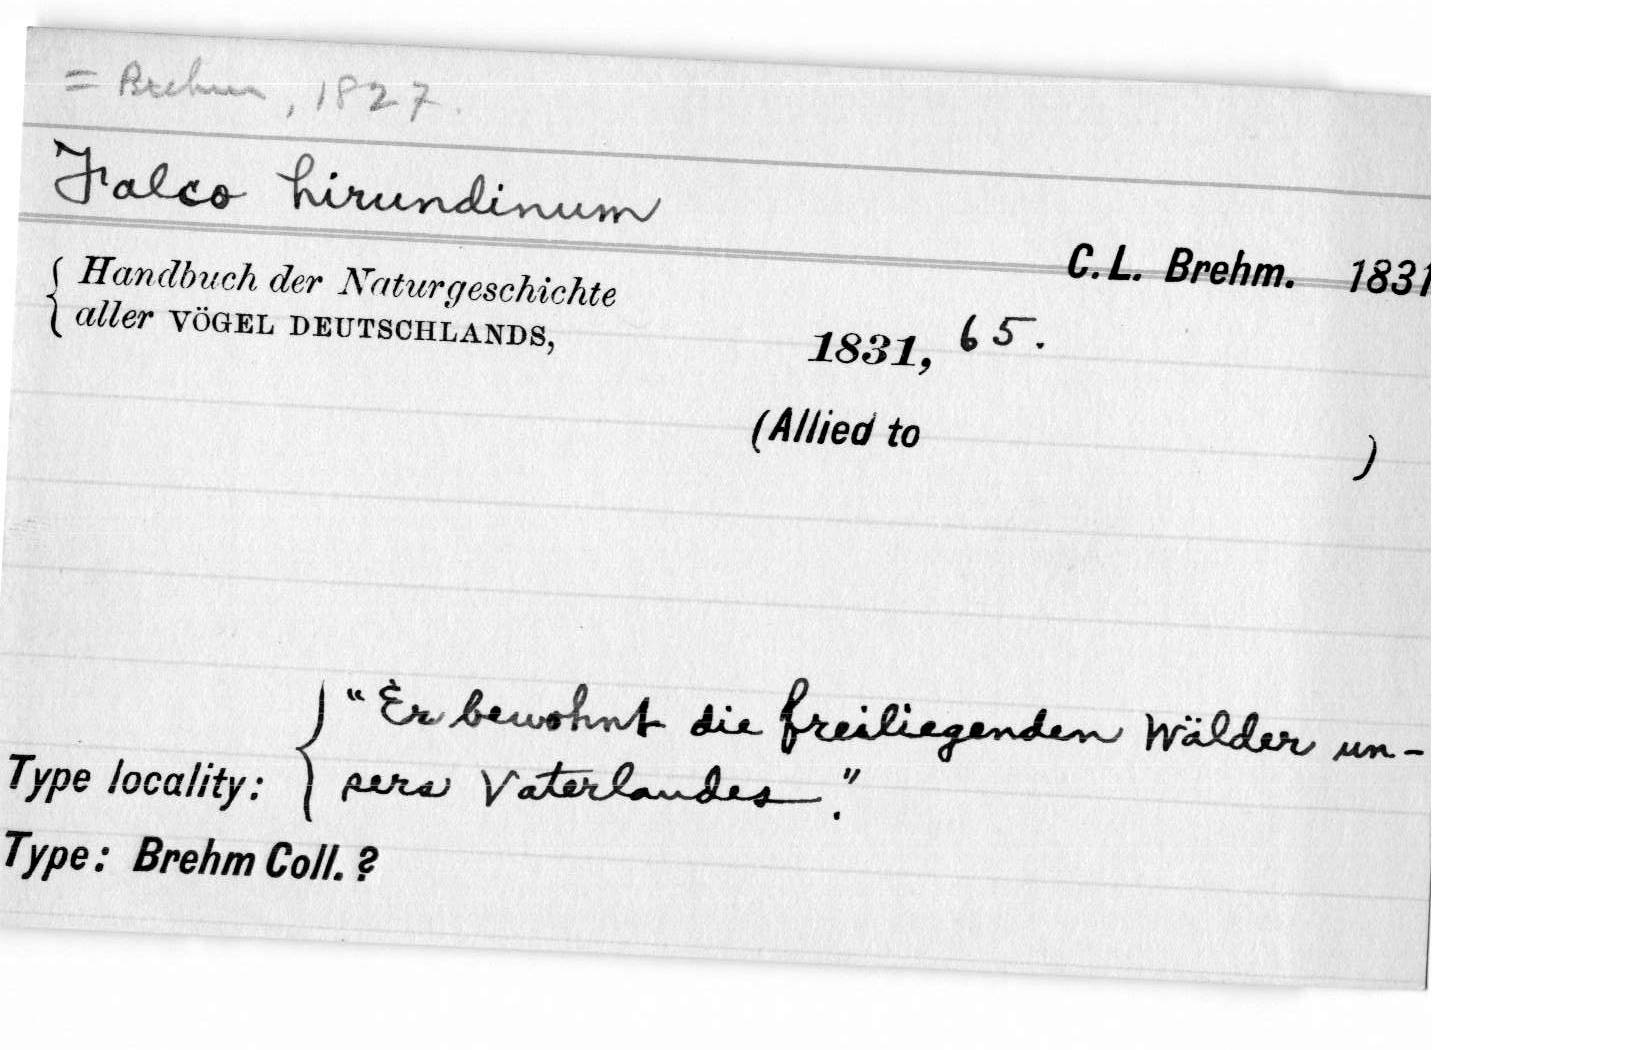 = Brehm, 1827.
Falco hirundinum
C. L. Brehm. 1831
Handbuch der Naturgeschichte
aller VÖGEL DEUTSCHLANDS,
1831, 65.
(Allied to )
"Er bewohnt die freiliegenden Wälder un-
Type locality: sers Vaterlandes."
Type: Brehm Coll. ?